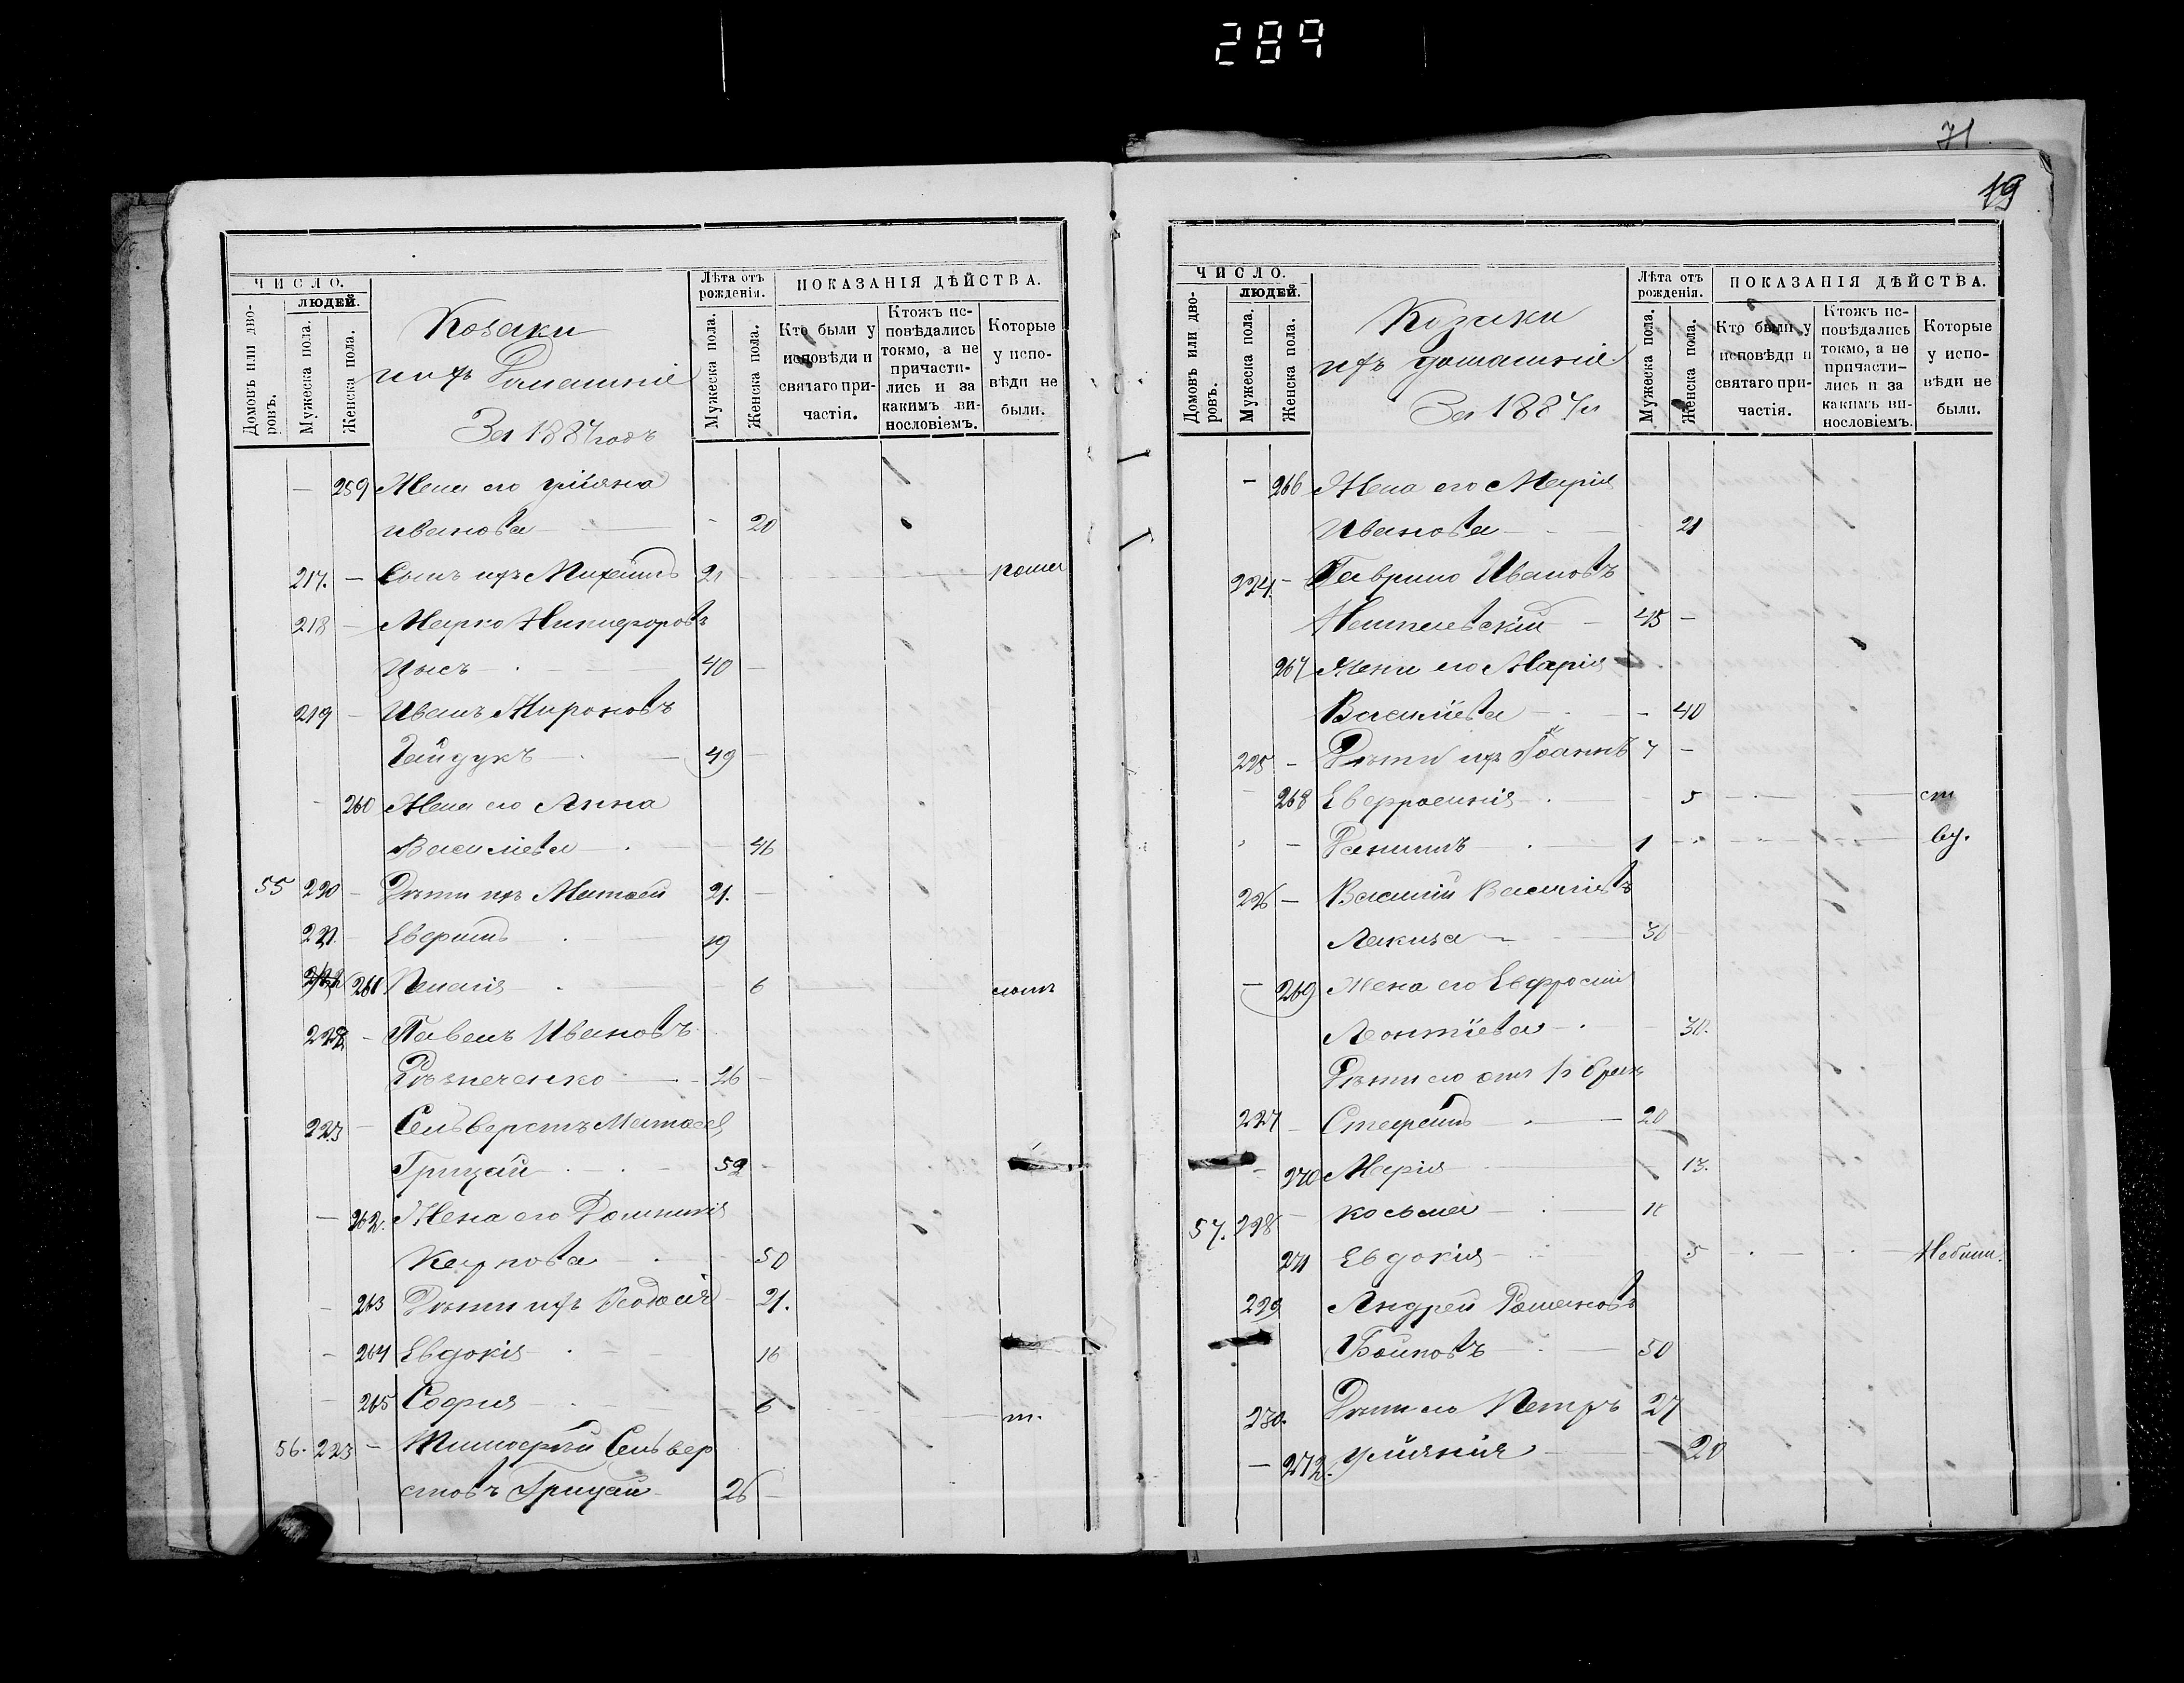 289
71.
19
ЧИСЛО.
людей.
Домовъ или дворовъ.
Мужеска пола.
Женска пола.
Козаки
ихъ Домашніе
За 1887 годъ
Лѣта отъ рожденія.
Мужеска пола.
Женска пола.
ПОКАЗАНІЯ ДѢЙСТВА.
Кто были у исповѣди и святаго причастія.
Ктожъ исповѣдались токмо, а не причастились и за какимъ винословіемъ.
Которые у исповѣди не были.
— 259 Жена его Уліяна
Иванова — 20
217. — Сынъ ихъ Михаилъ 21
218 — Марко Никифоровъ
Цысь — 40 —
219 — Иванъ Мироновъ
Гайдукъ — 49 —
— 260 Жена его Анна
Василіева — 46
55 220 — Дѣти ихъ Матѳей 21. —
221 Евфимъ — 19
261 Пелагія — 6
222 — Павелъ Ивановъ
26 —
223 — Сельверстъ Матѳеев
Грицай — 52 —
— 262. Жена его Домникія
Карпова — 50
— 263 Дѣти ихъ Ѳеодосія 21.
— 264 Евдокія — 16
— 265 Софія — 6 — м.
56. 223 — Тимоѳей Сельвер
стовъ Грицай — 26 —
ЧИСЛО.
людей.
Домовъ или дворовъ.
Мужеска пола.
Женска пола.
Козаки
ихъ домашніе
За 1887 г
Лѣта отъ рожденія.
Мужеска пола.
Женска пола.
ПОКАЗАНІЯ ДѢЙСТВА.
Кто были у исповѣди и святаго причастія.
Ктожъ исповѣдались токмо, а не причастились и за какимъ винословіемъ.
Которые у исповѣди не были.
— 266 Жена его Марія
Иванова — 21
224. — Гаврило Ивановъ
45 —
267 Жена его Марія
Василіева — 40
225 — Дѣти ихъ Іоаннъ 7 —
268 Евфросинія — 5
— Даніилъ — 1 —
226 — Василій Василіевъ
Лакиза — 30
— 269 Жена его Евфросин
Леонтіева — 30.
Дѣти его отъ 1го брака
227 — Стефанъ — 20
— 270 Марія — 13.
57. 228 — Косьма — 11
271 Евдокія — 5
229 Андрей Романовъ
50
230. Дѣти его Петръ 27
— 272. Уліянія — 20